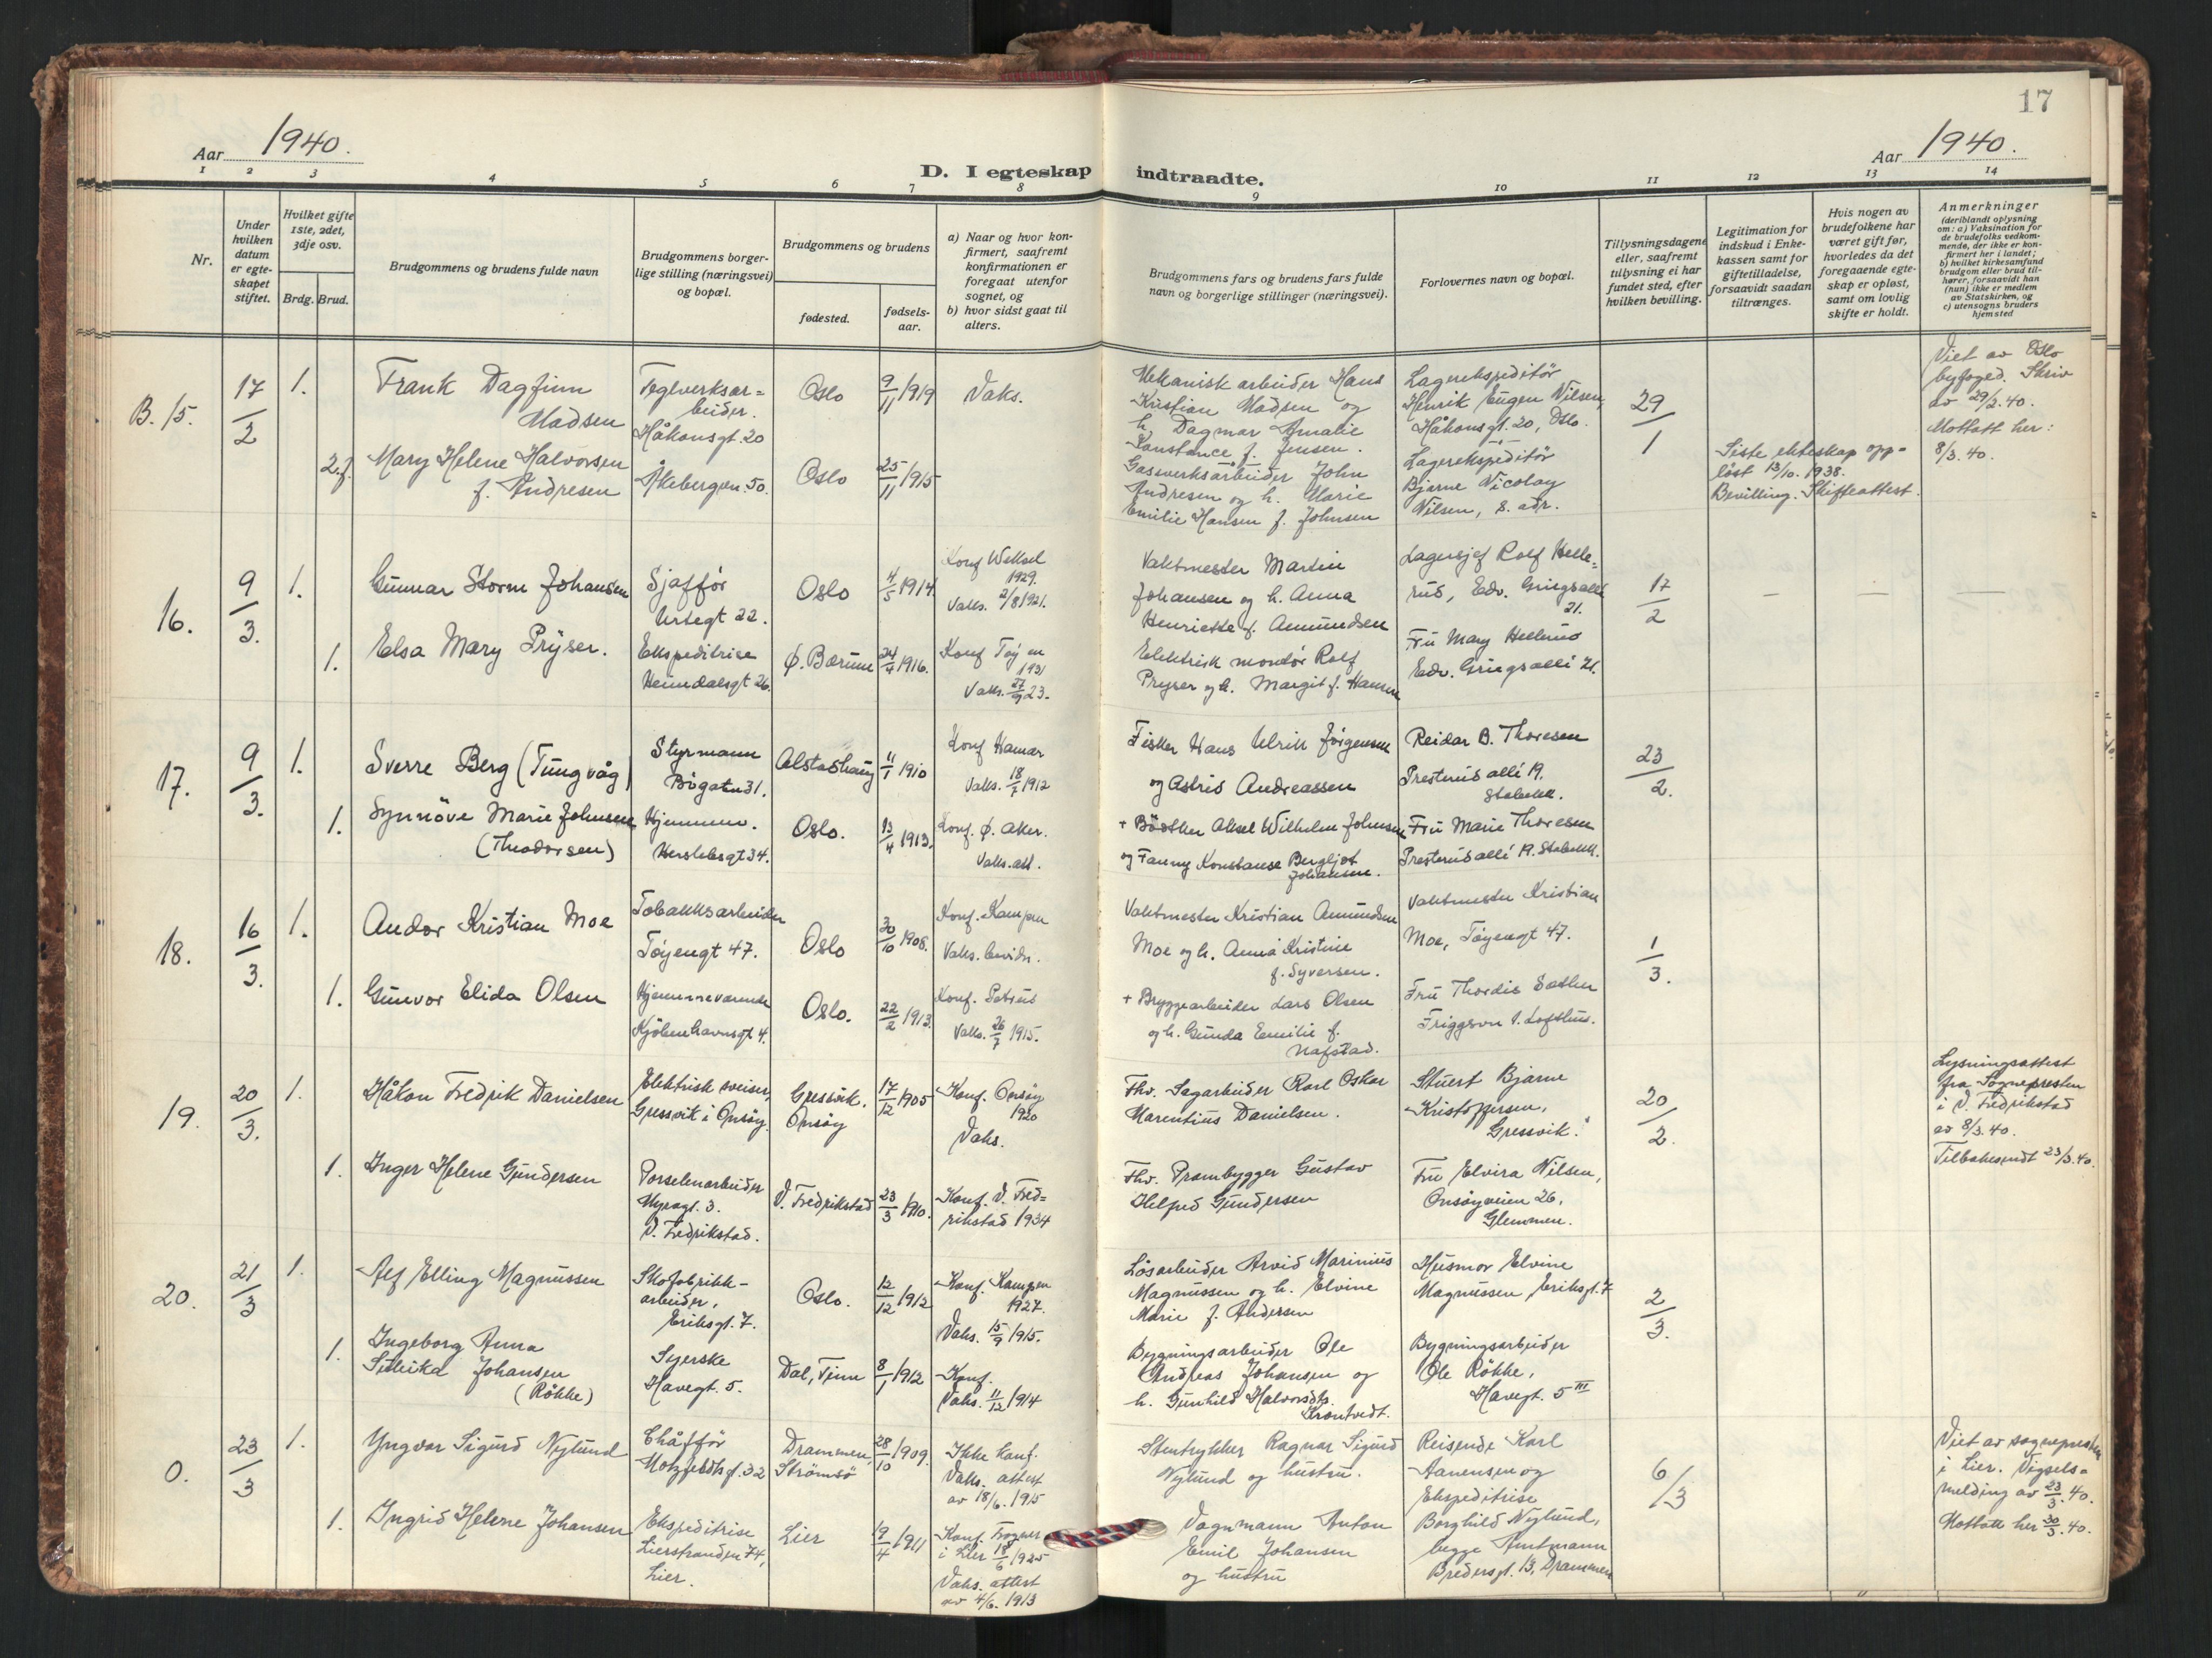 17
Aar 1940.
D. I egteskap indtraadte.
Aar 1940.
1 2 3 4 5 6 7 8 9 10 11 12 13 14
Nr.
Under
hvilken
datum
er egte-
skapet
stiftet.
Hvilket gifte
1ste, 2det,
3dje osv.
Brdg. Brud.
Brudgommens og brudens fulde navn
Brudgommens borger-
lige stilling (næringsvei)
og bopæl.
Brudgommens og brudens
fødested.
fødsels-
aar.
a) Naar og hvor kon-
firmert, saafremt
konfirmationen er
foregaat utenfor
sognet, og
b) hvor sidst gaat til
alters.
Brudgommens fars og brudens fars fulde
navn og borgerlige stillinger (næringsvei).
Forlovernes navn og bopæl.
Tillysningsdagene
eller, saafremt
tillysning ei har
fundet sted, efter
hvilken bevilling.
Legitimation for
indskud i Enke-
kassen samt for
giftetilladelse,
forsaavidt saadan
tiltrænges.
Hvis nogen av
brudefolkene har
været gift før,
hvorledes da det
foregaaende egte-
skap er opløst,
samt om lovlig
skifte er holdt.
Anmerkninger
(deriblandt oplysning
om: a) Vaksination for
de brudefolks vedkom-
mende, der ikke er kon-
firmert her i landet;
b) hvilket kirkesamfund
brudgom eller brud til-
hører, forsaavidt han
(hun) ikke er medlem
av Statskirken, og
c) utensogns bruders
hjemsted
B. 15.
17/2
1.
Frank Dagfinn
Madsen
Teglverksar=
beider.
Håkonsgt. 20
Oslo
9/11 1919
Vaks.
Mekanisk arbeider Hans
Kristian Madsen og
h. Dagmar Amalie
Konstance f. Jensen.
Lagerekspeditör
Henrik Eugen Nilsen,
Håkonsgt. 20, Oslo.
29/1
Viet av Oslo
byfoged. Skriv
av 29/2.40.
Mottatt her:
8/3.40.
2.f.
Mary Helene Halvorsen
f. Andresen
Åkebergvn. 50.
Oslo
25/11 1915
Gassverksarbeider John
Andresen og h. Marie
Emilie Hansen f. Johnsen
Lagerekspeditör
Bjarne Nicolay
Nilsen, s. adr.
Siste ekteskap opp-
löst 13/10. 1938.
Bevilling. Skifteattest.
16.
9/3.
1.
Gunnar Storm Johansen
Sjafför
Urtegt 22.
Oslo
4/5 1914.
Konf Weksel
1929.
Vaks. 2/8 1921.
Vaktmester Martin
Johansen og h. Anna
Henriette f. Amundsen
Lagersjef Rolf Helle-
rud, Edv. Griegs allé
21.
17/2
— — —
1.
Elsa Mary Prÿser.
Ekspeditrise
Heimdalsgt 26.
Ø. Bærum
24/4 1916.
Konf Töyen
1931
Vaks. 27/9 23.
Elektrisk montör Rolf
Pryser og h. Margit f. Hansen
Fru Mary Hellerud
Edv. Griegs allé 21.
17.
9/3.
1.
Sverre Berg (Tungvåg)
Styrmann
Bögaten 31.
Alstadhaug
11/1 1910
Konf Hamar
Vaks. 18/7 1912
Fisker Hans Ulrik Jörgensen
og Astrid Andreassen
Reidar B. Thoresen
Presterud allé 19.
Stabekk.
23/2.
1.
Synnöve Marie Johnsen
(Theodorsen)
Hjemmev.
Herslebsgt 34.
Oslo.
13/4 1913.
Konf. Ø. Aker.
Vaks. att.
+ Bödker Aksel Wilhelm Johnsen
og Fanny Konstanse Bergljot
Johansen.
Fru Marie Thoresen
Presterud allé 19. Stabekk.
18.
16/3.
1.
Andor Kristian Moe
Tobakksarbeider
Töyengt 47.
Oslo
30/10 1908.
Konf. Kampen
Vaks. bevidn.
Vaktmester Kristian Amundsen
Moe og h. Anna Kristine
f. Syversen.
Vaktmester Kristian
Moe, Töyengt 47.
1/3.
1.
Gunvor Elida Olsen
Hjemmeværende
Kjöbenhavnsgt 4.
Oslo.
22/2 1913.
Konf. Petrus
Vaks. 26/7 1915.
+ Bryggearbeider Lars Olsen
og h. Gunda Emilie f.
Nafstad.
Fru Thordis Sæther
Friggsvn 1. Lofthus.
19.
20/3.
1.
Håkon Fredrik Danielsen
Elektrisk sveiser,
Gressvik i Onsöy.
Gressvik.
Onsöy
17/12 1905
Konf. Onsöy
1920
Vaks.
Fhv. Sagarbeider Karl Oskar
Marentius Danielsen.
Stuert Bjarne
Kristoffersen,
Gressvik.
20/2.
Lysningsattest
fra Sognepresten
i V. Fredrikstad
av 8/3.40.
Tilbakesendt 23/3.40.
1.
Inger Helene Gundersen
Porselenarbeider
Myragt. 3.
V. Fredrikstad.
V. Fredrikstad
23/3 1910.
Konf. V. Fred=
rikstad 1934
Fhv. Prambygger Gustav
Helfred Gundersen
Fru Elvira Nilsen,
Onsöyveien 26,
Glemmen.
20.
21/3
1.
Alf Elling Magnussen
Skofabrikk-
arbeider,
Eriksgt. 7.
Oslo.
12/12 1912
Konf. Kampen
1927.
Vaks. 15/9 1915.
Lösarbeider Arvid Marinius
Magnussen og h. Elvine
Marie f. Andersen
Husmor Elvine
Magnussen, Eriksgt. 7
2/3.
1.
Ingeborg Anna
Johansen
(Rökke)
Syerske
Havegt. 5.
Dal, Tinn
8/1 1912
Konf.
Vaks. 11/12 1914
Bygningsarbeider Ole
Andreas Johansen og
h. Gunhild Halvorsdtr.
Bygningsarbeider
Ole Rökke,
Havegt. 5 III
0.
23/3
1.
Yngvar Sigurd Nylund
Chåfför
Motzfeldtsgt. 32
Drammen,
Strömsö
28/10 1909.
Ikke konf.
Vaks. attest
av 18/6. 1915
Stentrykker Ragnar Sigurd
Nylund og hustru.
Reisende Karl
Aanensen og
Ekspeditrise
Borghild Nylund,
begge Amtmann
Bredersgt. 13, Drammen
6/3
Viet av sognepresten
i Lier. Vigsels=
melding av 23/3.40.
Mottatt her 30/3.40.
1.
Ingrid Helene Johansen
Ekspeditrise
Lierstranden 74,
Lier.
Lier
19/4 1911
Konf. Frogner
i Lier 18/6 1925
Vaks. attest
av 4/6. 1913
Vognmann Anton
Emil Johansen
og hustru